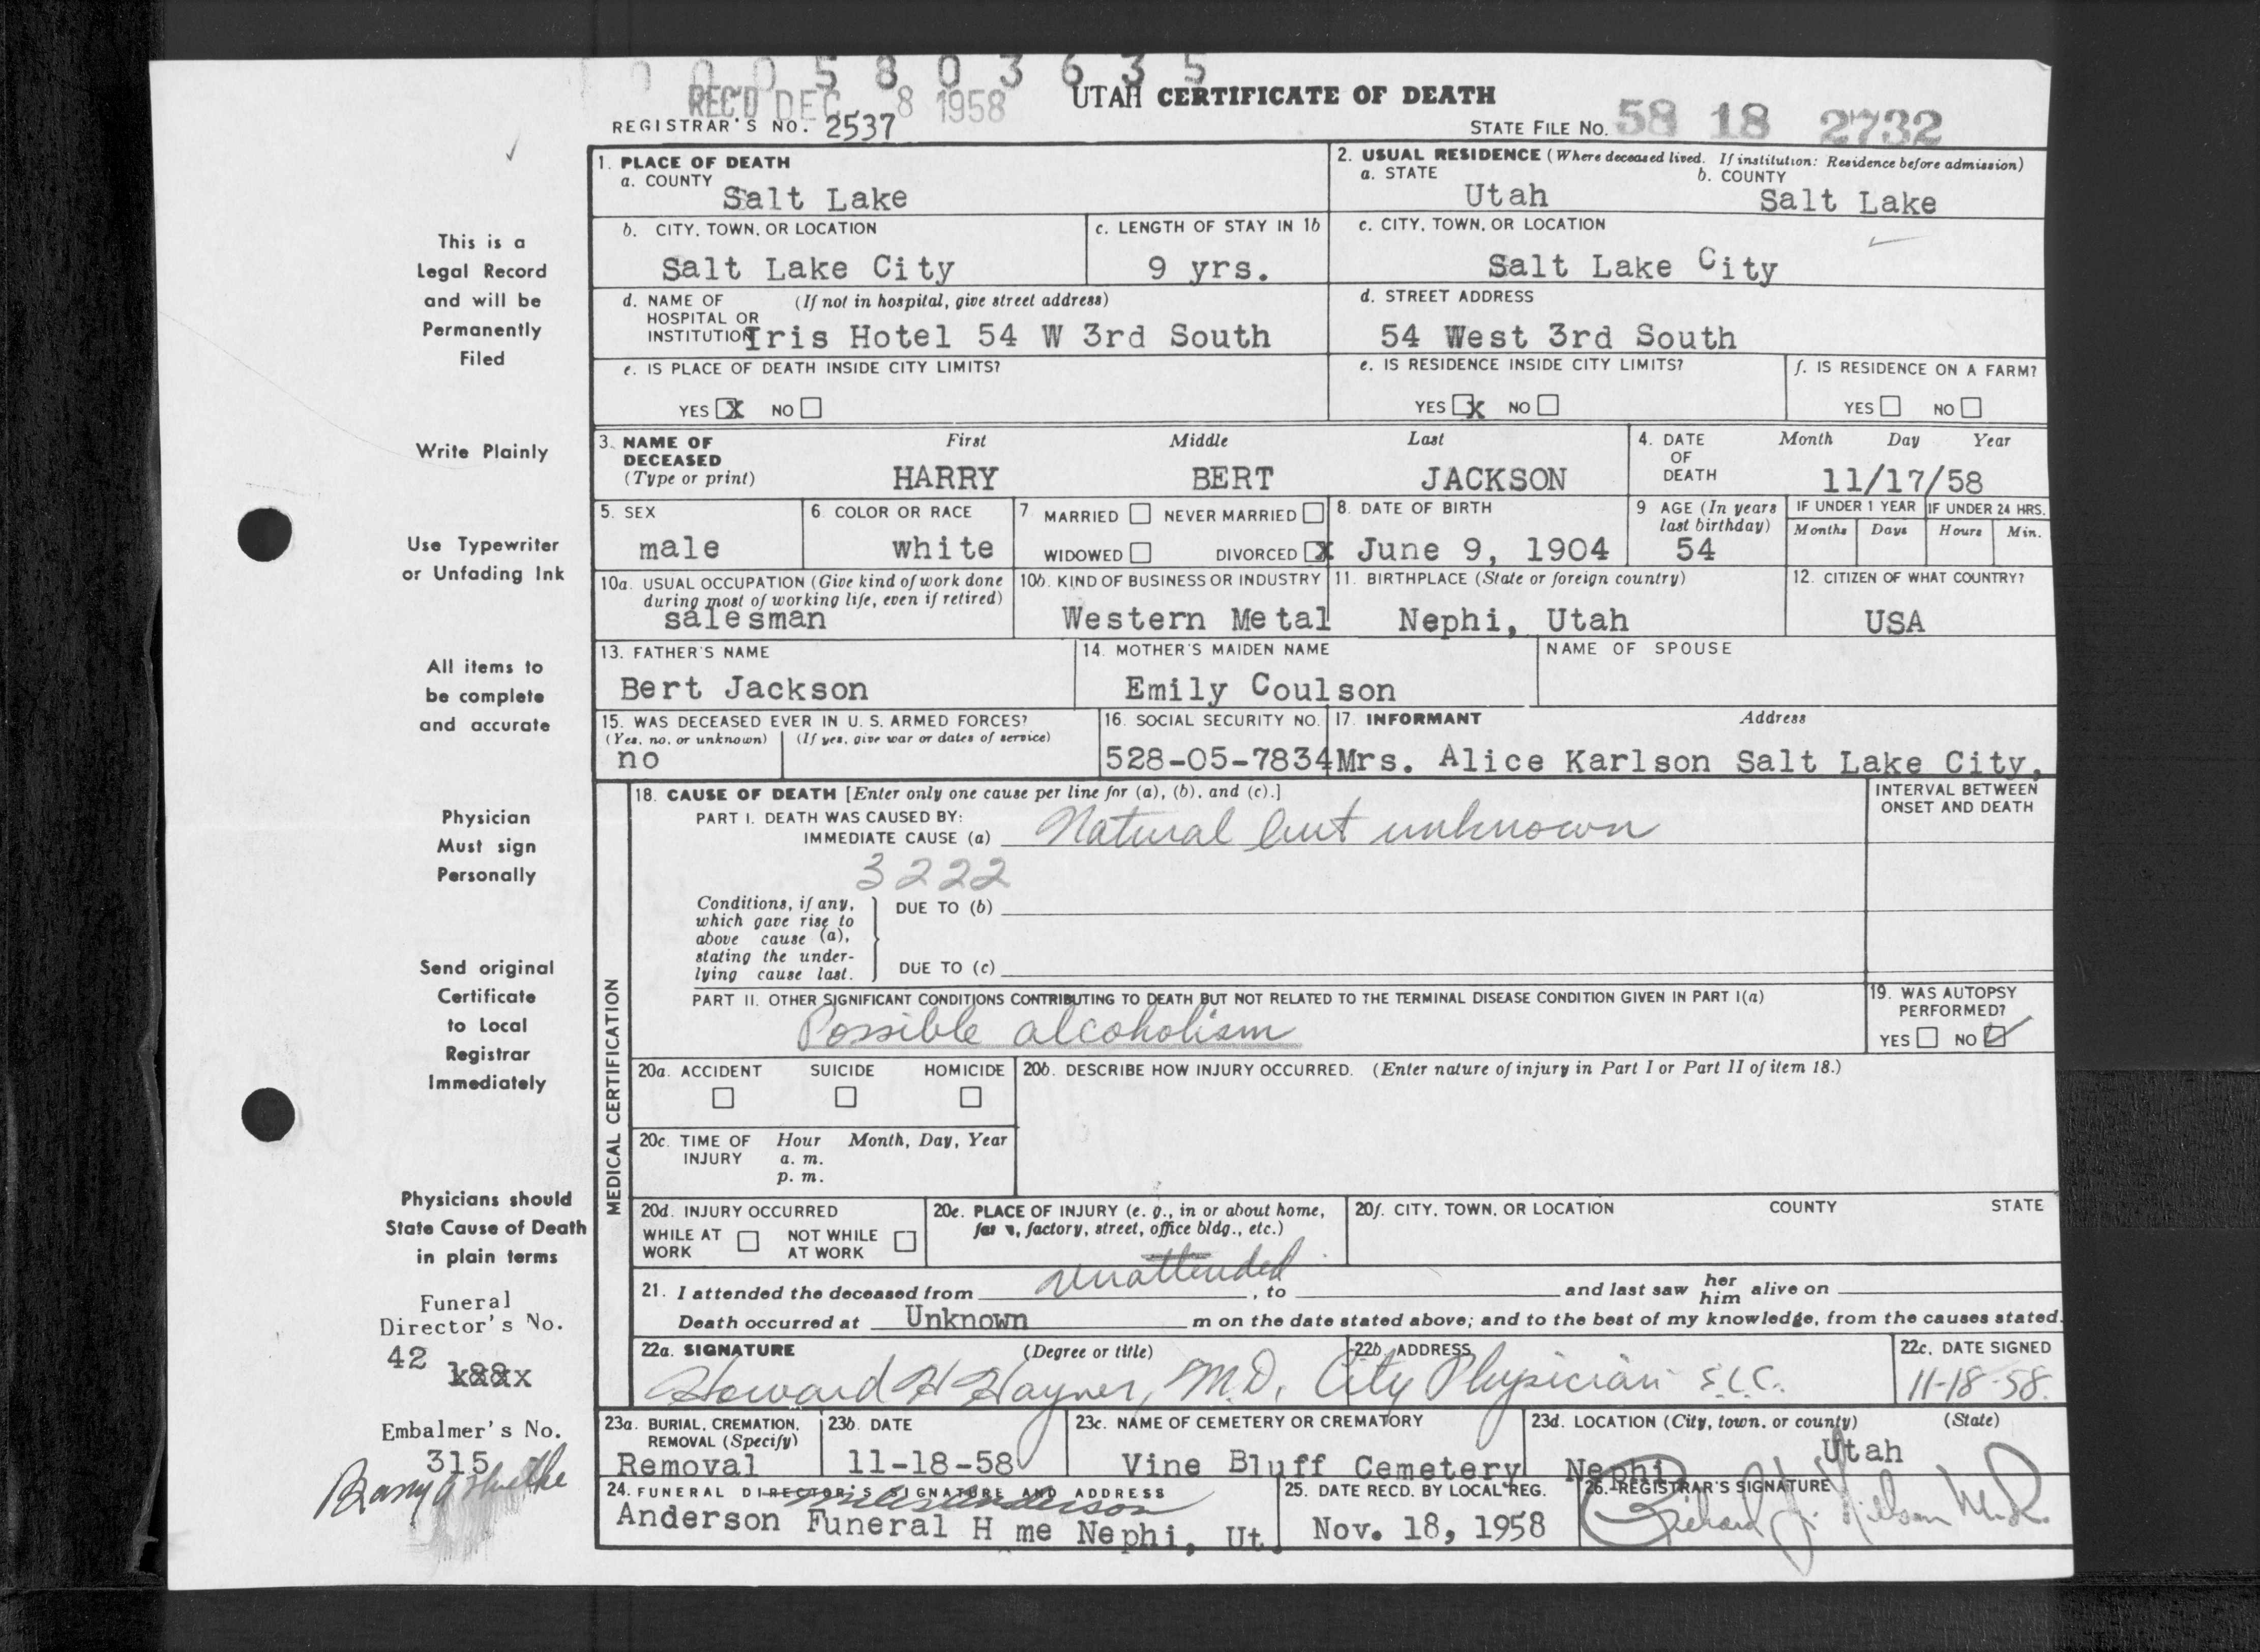 0 0 0 5 8 0 3 6 3 5
REC'D DEC 8 1958
UTAH CERTIFICATE OF DEATH
REGISTRAR'S NO. 2537
STATE FILE NO. 58 18 2732
This is a
Legal Record
and will be
Permanently
Filed
Write Plainly
Use Typewriter
or Unfading Ink
All items to
be complete
and accurate
Physician
Must sign
Personally
Send original
Certificate
to Local
Registrar
Immediately
Physicians should
State Cause of Death
in plain terms
Funeral
Director's No.
42
Embalmer's No.
315
1. PLACE OF DEATH
a. COUNTY
Salt Lake
2. USUAL RESIDENCE (Where deceased lived. If institution: Residence before admission)
a. STATE b. COUNTY
Utah Salt Lake
b. CITY, TOWN, OR LOCATION
Salt Lake City
c. LENGTH OF STAY IN 1b
9 yrs.
c. CITY, TOWN, OR LOCATION
Salt Lake City
d. NAME OF (If not in hospital, give street address)
HOSPITAL OR
INSTITUTION Iris Hotel 54 W 3rd South
d. STREET ADDRESS
54 West 3rd South
e. IS PLACE OF DEATH INSIDE CITY LIMITS?
YES X NO
e. IS RESIDENCE INSIDE CITY LIMITS?
YES X NO
f. IS RESIDENCE ON A FARM?
YES NO
3. NAME OF
DECEASED
(Type or print)
First Middle Last
HARRY BERT JACKSON
4. DATE
OF
DEATH
Month Day Year
11/17/58
5. SEX
male
6. COLOR OR RACE
white
7. MARRIED NEVER MARRIED
WIDOWED DIVORCED X
8. DATE OF BIRTH
June 9, 1904
9 AGE (In years
last birthday)
54
IF UNDER 1 YEAR
Months Days
IF UNDER 24 HRS.
Hours Min.
10a. USUAL OCCUPATION (Give kind of work done
during most of working life, even if retired)
salesman
10b. KIND OF BUSINESS OR INDUSTRY
Western Metal
11. BIRTHPLACE (State or foreign country)
Nephi, Utah
12. CITIZEN OF WHAT COUNTRY?
USA
13. FATHER'S NAME
Bert Jackson
14. MOTHER'S MAIDEN NAME
Emily Coulson
NAME OF SPOUSE
15. WAS DECEASED EVER IN U. S. ARMED FORCES?
(Yes, no, or unknown) (If yes, give war or dates of service)
no
16. SOCIAL SECURITY NO.
528-05-7834
17. INFORMANT Address
Mrs. Alice Karlson Salt Lake City,
MEDICAL CERTIFICATION
18. CAUSE OF DEATH [Enter only one cause per line for (a), (b), and (c).]
PART I. DEATH WAS CAUSED BY:
IMMEDIATE CAUSE (a) Natural but unknown
3222
Conditions, if any,
which gave rise to
above cause (a),
stating the under-
lying cause last.
DUE TO (b)
DUE TO (c)
INTERVAL BETWEEN
ONSET AND DEATH
PART II. OTHER SIGNIFICANT CONDITIONS CONTRIBUTING TO DEATH BUT NOT RELATED TO THE TERMINAL DISEASE CONDITION GIVEN IN PART I(a)
Possible alcoholism
19. WAS AUTOPSY
PERFORMED?
YES NO
20a. ACCIDENT SUICIDE HOMICIDE
20b. DESCRIBE HOW INJURY OCCURRED. (Enter nature of injury in Part I or Part II of item 18.)
20c. TIME OF Hour Month, Day, Year
INJURY a. m.
p. m.
20d. INJURY OCCURRED
WHILE AT NOT WHILE
WORK AT WORK
20e. PLACE OF INJURY (e. g., in or about home,
factory, street, office bldg., etc.)
20f. CITY, TOWN, OR LOCATION COUNTY STATE
21. I attended the deceased from unattended, to and last saw her him alive on
Death occurred at Unknown m on the date stated above; and to the best of my knowledge, from the causes stated.
22a. SIGNATURE (Degree or title)
Howard H Hayner, M.D.
22b. ADDRESS
City Physician S.L.C.
22c. DATE SIGNED
11-18-58.
23a. BURIAL, CREMATION,
REMOVAL (Specify)
Removal
23b. DATE
11-18-58
23c. NAME OF CEMETERY OR CREMATORY
Vine Bluff Cemetery
23d. LOCATION (City, town, or county) (State)
Nephi Utah
24. FUNERAL DIRECTOR'S SIGNATURE AND ADDRESS
Anderson Funeral H me Nephi, Ut.
25. DATE RECD. BY LOCAL REG.
Nov. 18, 1958
26. REGISTRAR'S SIGNATURE
Richard J. Nielson M.D.